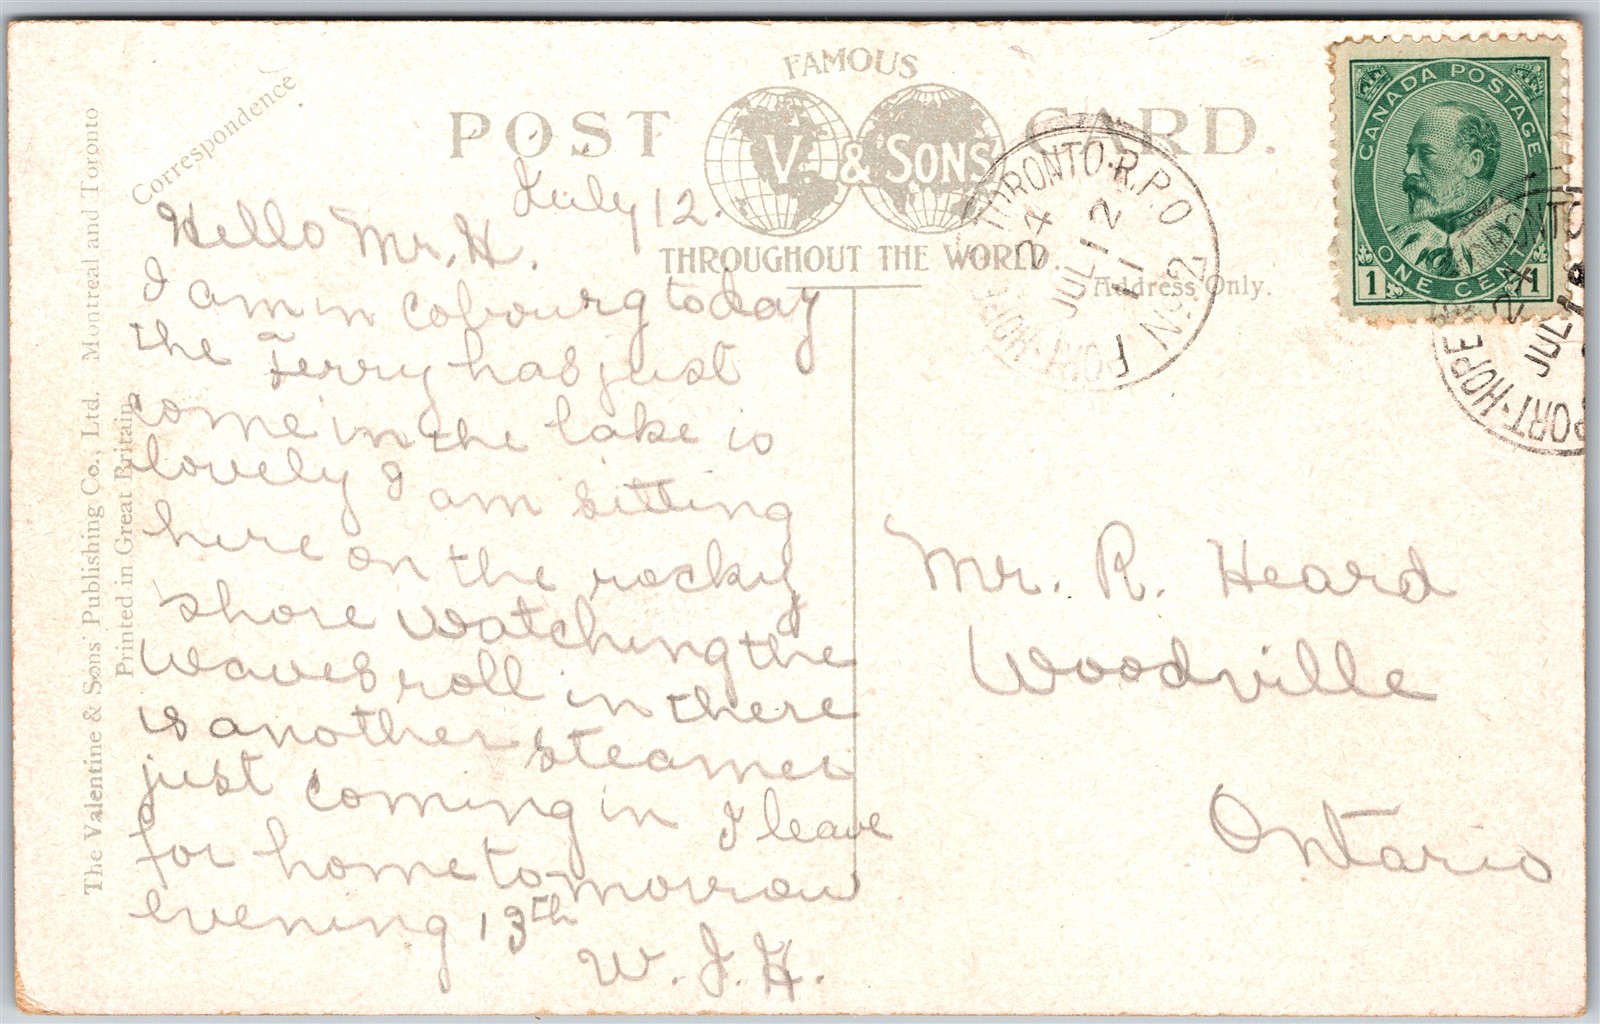 Correspondence
FAMOUS
POST CARD.
V. & SONS
THROUGHOUT THE WORLD
Address Only.
The Valentine & Sons' Publishing Co., Ltd. Montreal and Toronto
Printed in Great Britain.
July 12.
Hello Mr. H.
I am in Cobourg today
the Ferry has just
come in the lake is
lovely I am sitting
here on the rocky
shore watching the
waves roll in there
is another steamer
just coming in I leave
for home to-morrow
evening 13th
W. J. H.
Mr. R. Heard
Woodville
Ontario
CANADA POSTAGE
1 ONE CENT 1
TORONTO·R.P.O No. 2
24
JUL 12
11
PORT·HOPE
PORT·HOPE
24
JUL